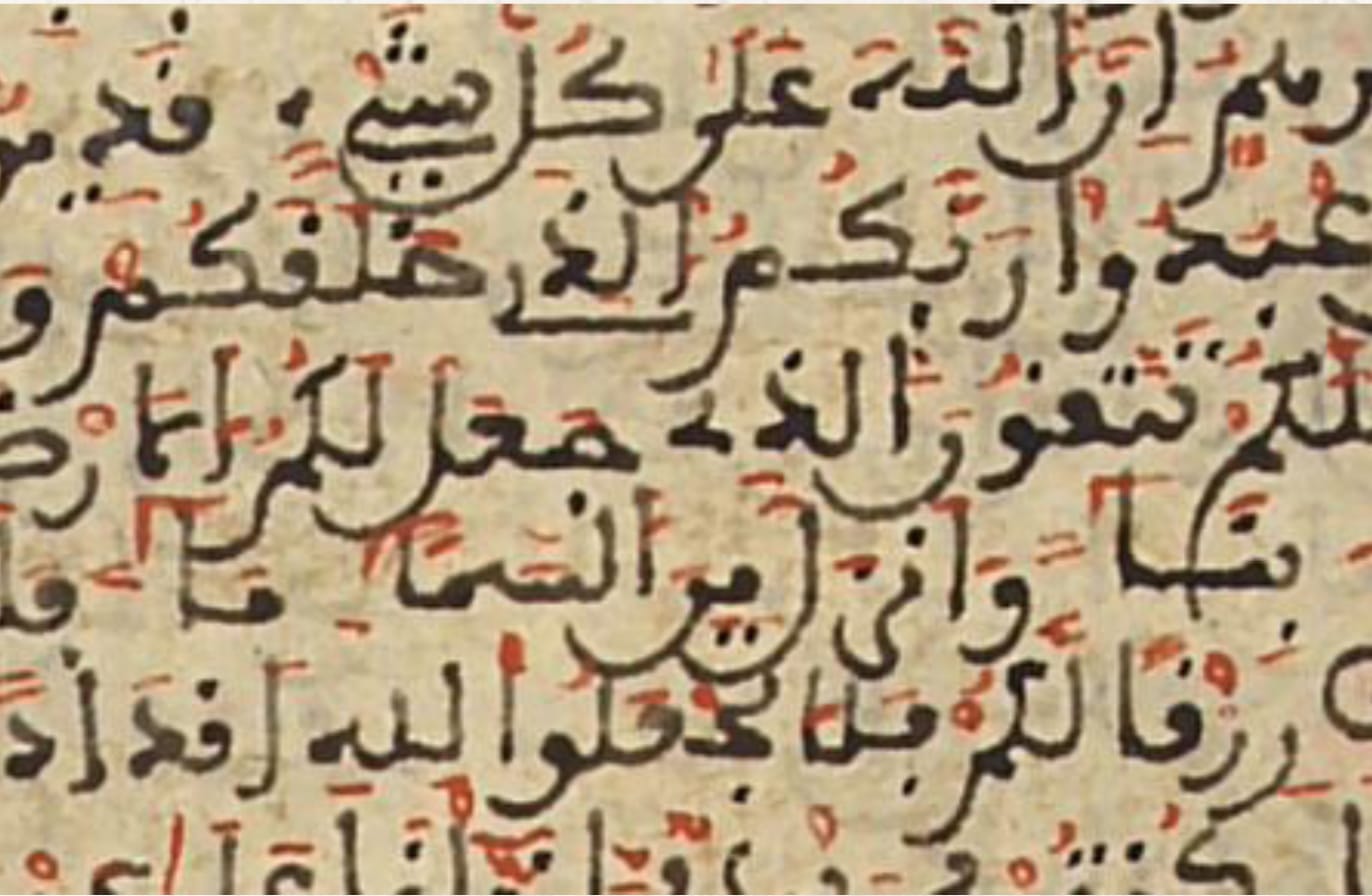 رهم ان الله على كل شيء قدير
عبدوا ربكم الذي خلقكم و
لعلكم تتقون الذي جعل لكم الارض
بنا وانزل من السما ما فا
رزقا لكم فلا تجعلوا لله اندادا